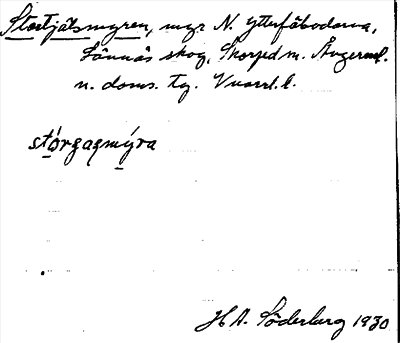 Stortjälsmyren, myr N. Ytterfäbodarna,
Lännäs skog, Skorped m. Ångerml.
n. doms. tg. Vnorrl. l.
stórzaqmýra
H A. Söderberg 1930